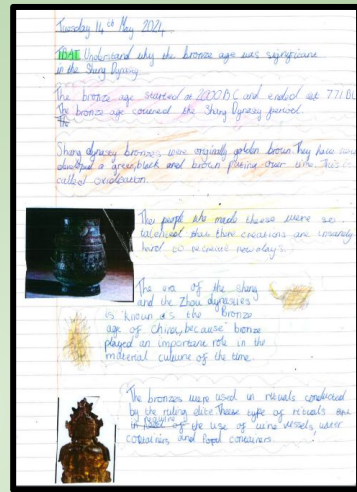 Tuesday 14th May 2024
TBAT Understand why the bronze age was significant
in the Shang Dynasty.
The bronze age started at 2000BC and ended at 771 BC
The bronze age covered the Shang Dynasty period.
The
Shang dynasty bronzes were originally golden brown. They have now
developed a green, black and brown plating over time. This is
called oxidisation.
The people who made these were so
talented that there creations are insanely
hard to recreate nowdays.
The era of the shang
and the Zhou dynasties
is known as the Bronze
age of China, because bronze
played an important role in the
material culture of the time.
The bronzes were used in rituals conducted
by the ruling elite. These type of rituals are
in require of the use of wine vessels, water
containers and food containers.